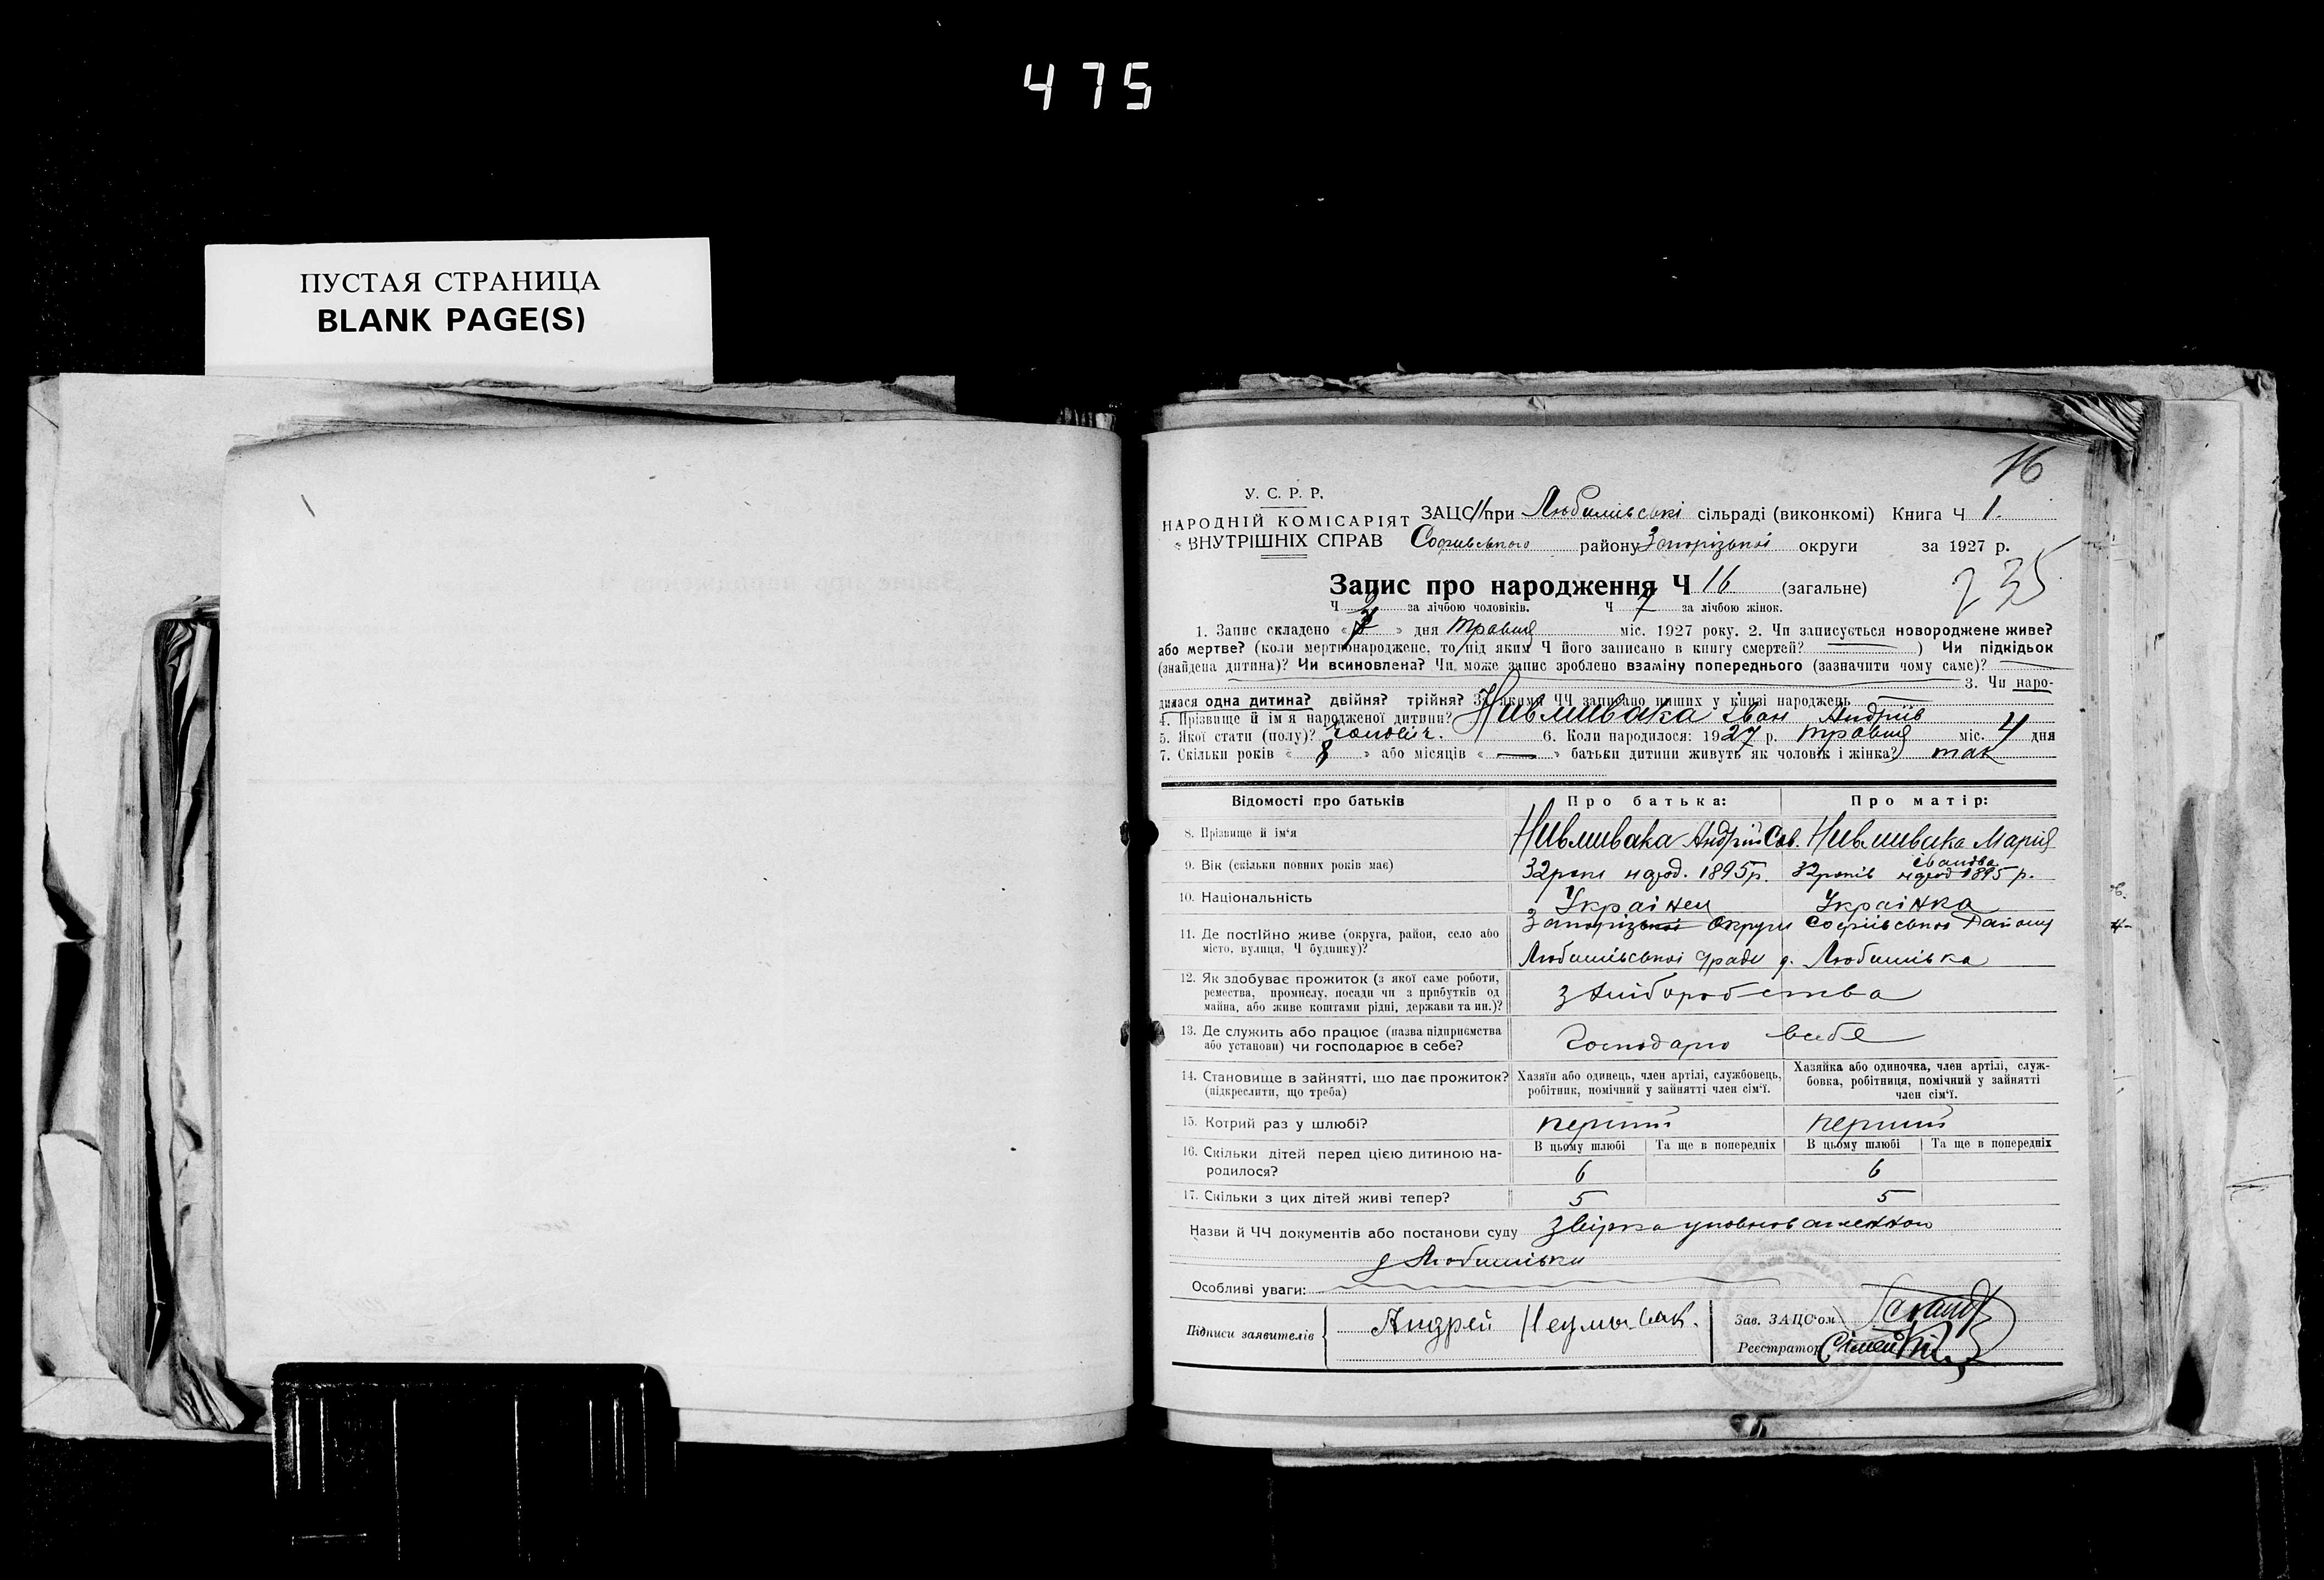 475
ПУСТАЯ СТРАНИЦА
BLANK PAGE(S)
16
У. С. Р. Р.
НАРОДНІЙ КОМІСАРІЯТ
ВНУТРІШНІХ СПРАВ
ЗАЦС при Любимівські сільраді (виконкомі) Книга Ч 1.
Софиівського району Запорізької округи за 1927 р.
Запис про народження Ч 16 (загальне)
235
Ч за лічбою чоловіків. Ч 7 за лічбою жінок.
1. Запис складено « » дня травня міс. 1927 року. 2. Чи записується новороджене живе?
або мертве? (коли мертвонароджене, то під яким Ч його записано в книгу смертей? ) Чи підкідьок
(знайдена дитина)? Чи всиновлена? Чи може запис зроблено взаміну попереднього (зазначити чому саме)?
3. Чи наро-
дилася одна дитина? двійня? трійня? За якими ЧЧ записано инших у книзі народжень
4. Прізвище й ім'я народженої дитини? Нивмивака Іван Андріїв
5. Якої стати (полу)? чоловіч. 6. Коли народилося: 1927 р. травня міс. 4 дня
7. Скільки років « 8 » або місяців « — » батьки дитини живуть як чоловік і жінка? так
Відомості про батьків Про батька: Про матір:
8. Прізвище й ім'я Нивмивака Андрій Сав. Нивмивака Мария
Іванова
9. Вік (скільки повних років має) 32 роки народ. 1895 р. 32 років народ 1895 р.
10. Національність Українец Українка
11. Де постійно живе (округа, район, село або
місто, вулиця, Ч будинку)?
Запорізької Округи Софіївського Району
Любимівської с/ради д. Любимівка
12. Як здобуває прожиток (з якої саме роботи,
ремества, промислу, посади чи з прибутків од
майна, або живе коштами рідні, держави та ин.)?
з хлібороб ства
13. Де служить або працює (назва підприємства
або установи) чи господарює в себе?
Господарю в себе
14. Становище в зайнятті, що дає прожиток?
(підкреслити, що треба)
Хазяїн або одинець, член артілі, службовець,
робітник, помічний у зайнятті член сім'ї.
Хазяйка або одиночка, член артілі, служ-
бовка, робітниця, помічний у зайнятті
член сім'ї.
15. Котрий раз у шлюбі? перший перший
16. Скільки дітей перед цією дитиною на-
родилося?
В цьому шлюбі Та ще в попередніх В цьому шлюбі Та ще в попередніх
6 6
17. Скільки з цих дітей живі тепер? 5 5
Назви й ЧЧ документів або постанови суду звірка уповноваженного
д Любимівки
Особливі уваги:
Підписи заявителів Андрей
Зав. ЗАЦС'ом
Реєстратор